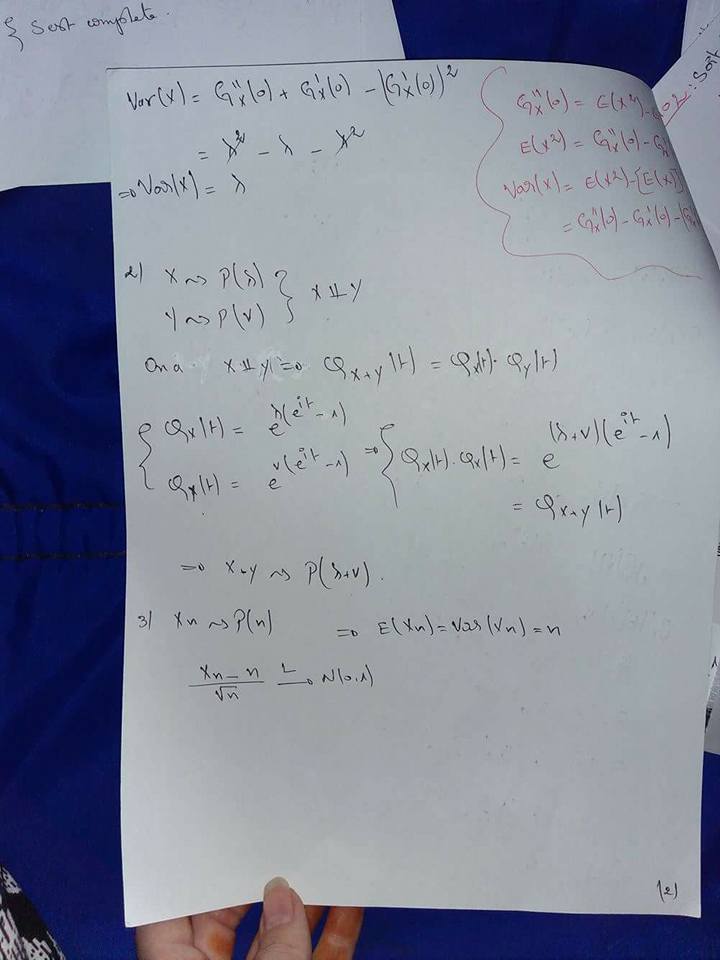 Sont complete.
Var(X) = G''x(0) + G'x(0) - (G'x(0))²
= λ² - λ - λ²
=> Var(X) = λ
G''x(0) = E(X²) -
E(X²) = G''x(0) - G'x
Var(X) = E(X²) - [E(X)]
= G''x(0) - G'x(0) - (G'x
2) X ~> P(λ)
Y ~> P(ν) } X ⊥⊥ Y
On a X ⊥⊥ Y => φx+y(t) = φx(t) · φy(t)
{ φx(t) = e^λ(e^it - 1)
φx(t) = e^ν(e^it - 1) => { φx(t) · φx(t) = e^(λ+ν)(e^it - 1)
= φx+y(t)
=> X+Y ~> P(λ+ν).
3) Xn ~> P(n) => E(Xn) = Var(Xn) = n
Xn - n / √n —L→ N(0,1)
(2)